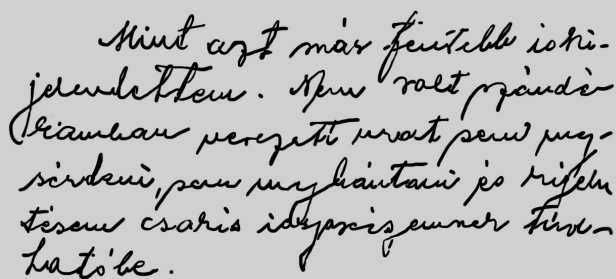 Mint azt már fentebb is ki-
jelentettem. Nem volt szándé-
komban vezető urat sem meg-
sérteni, sem megbántani és kijelen
tésem csakis
ható be.